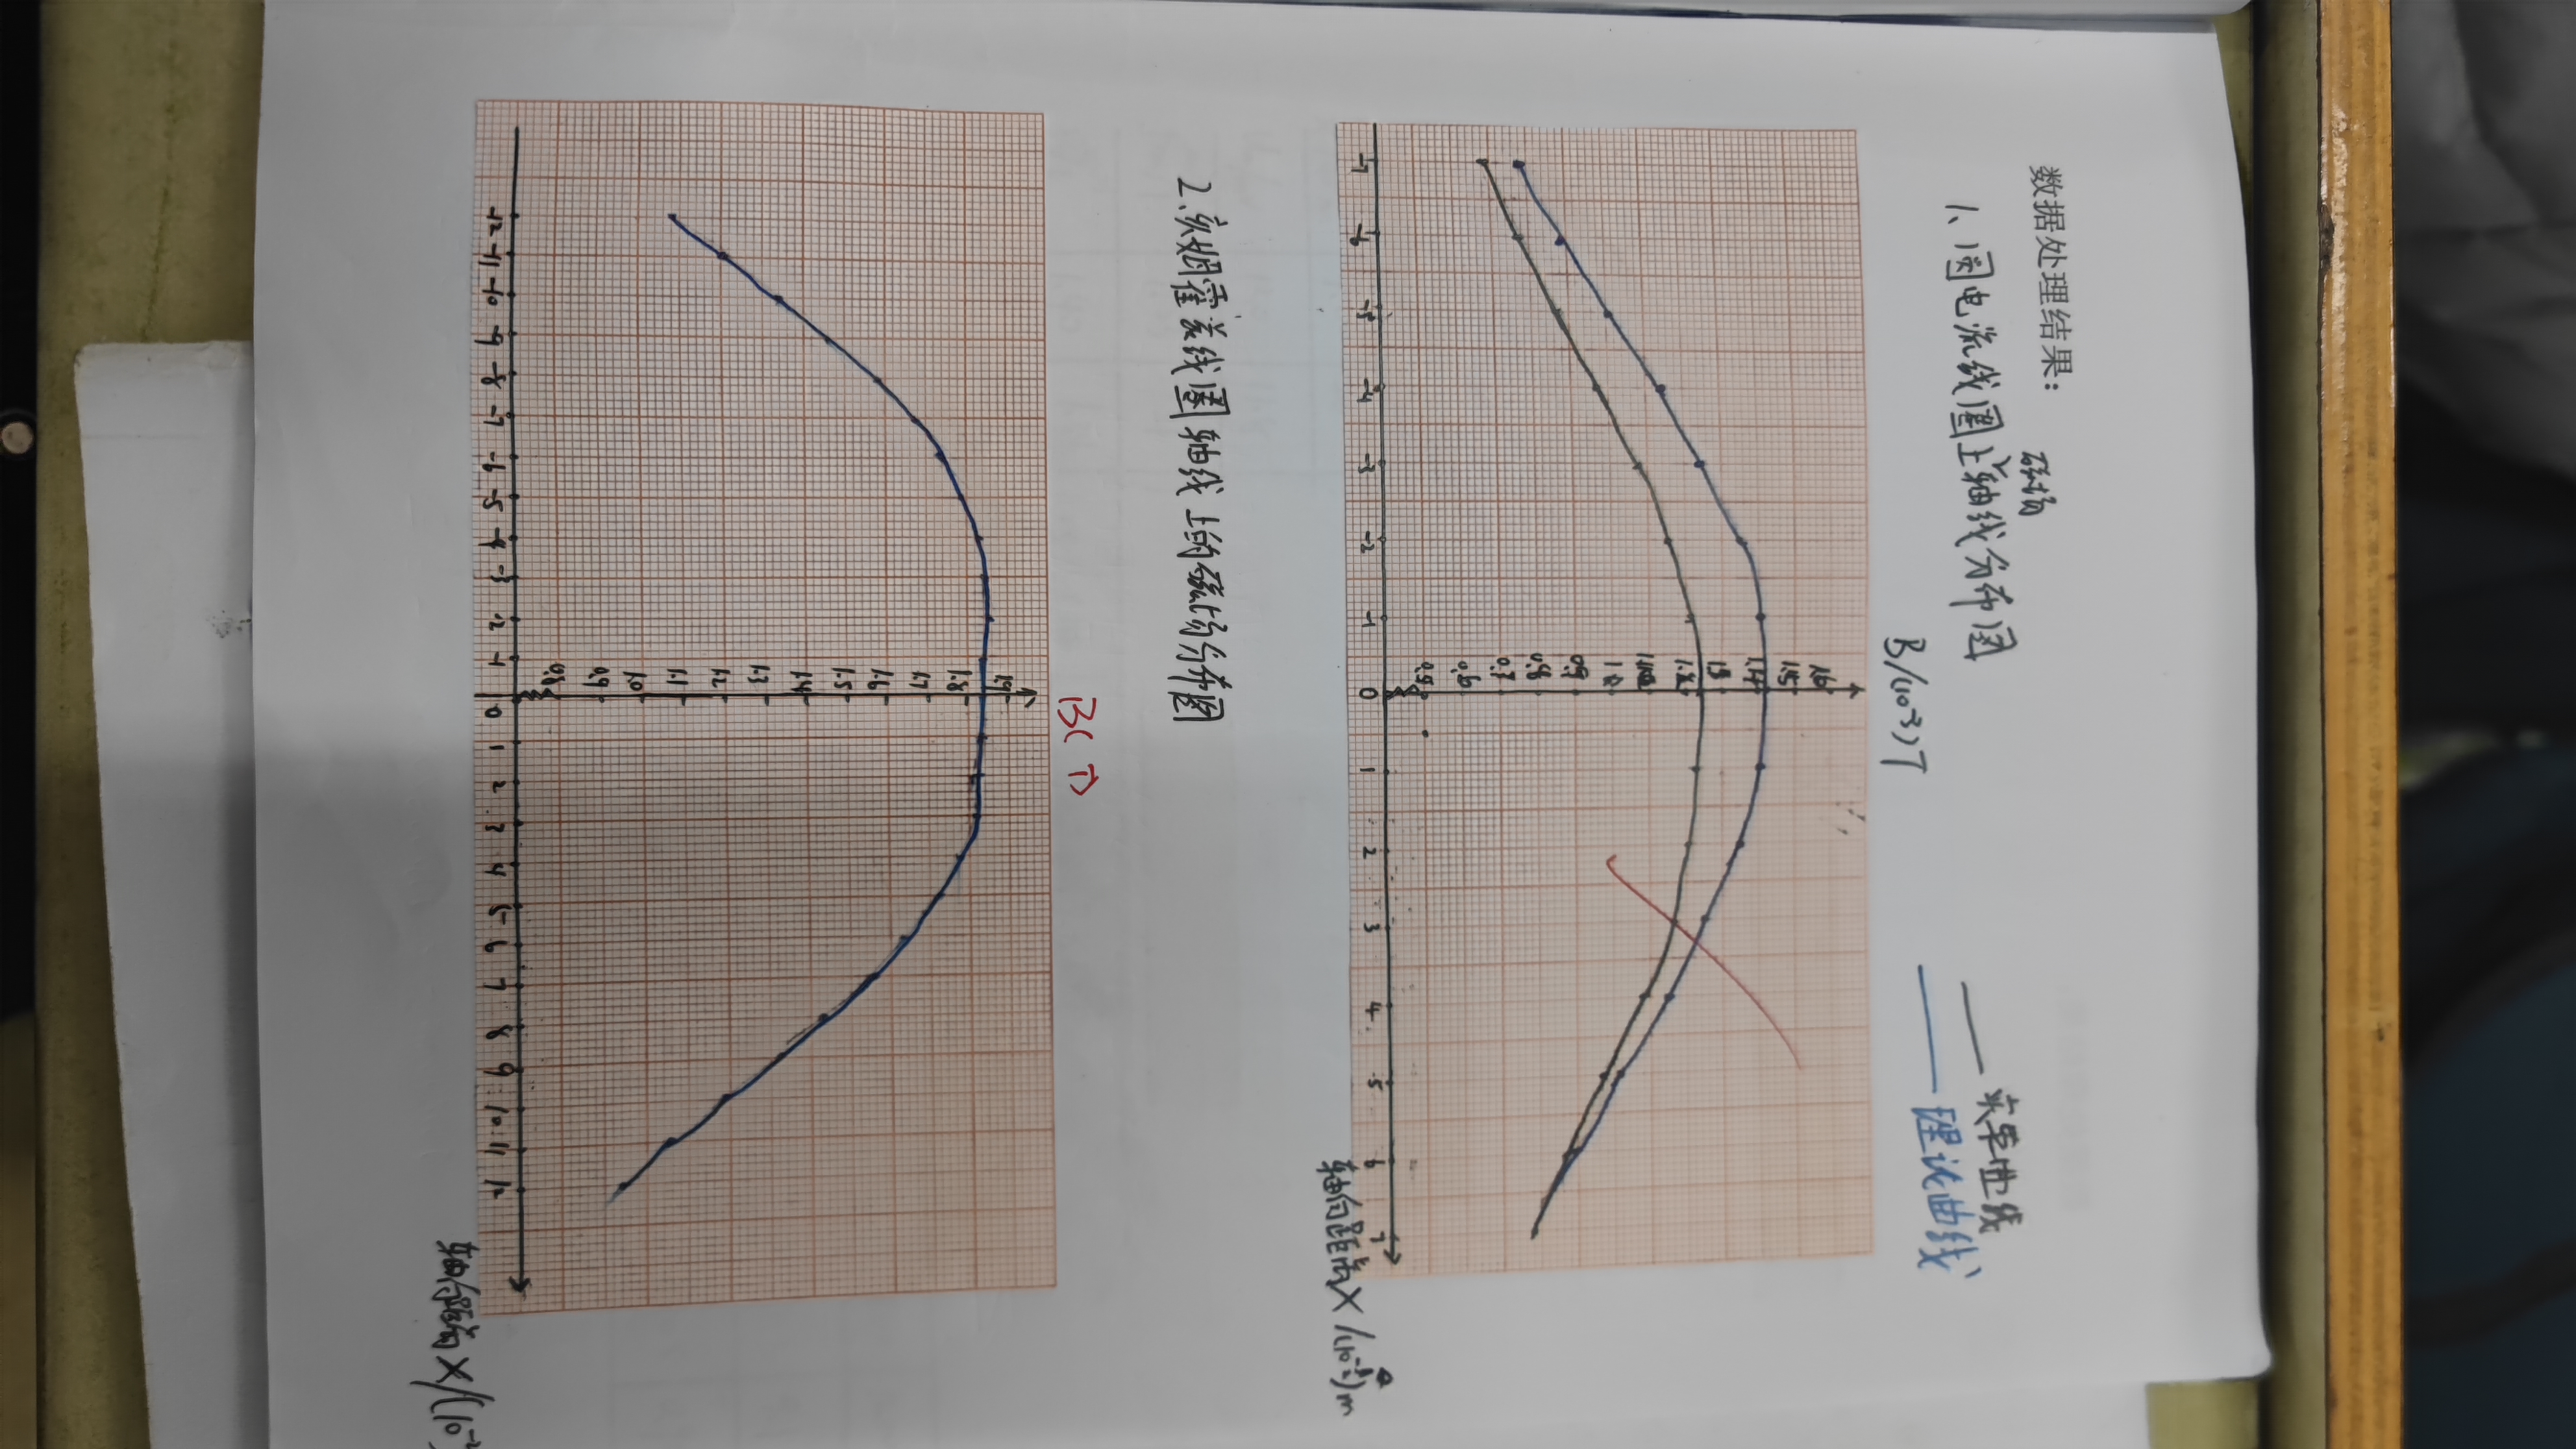 数据处理结果:
磁场
1、圆电流线圈上轴线分布图
B/(10⁻³)T
—— 实验曲线
—— 理论曲线
1.6
1.5
1.4
1.3
1.2
1.0
0.9
0.8
0.7
0.6
0.5
-7 -6 -5 -4 -3 -2 -1 0 1 2 3 4 5 6 7
轴向距离X/(10⁻²)m
2.亥姆霍兹线圈轴线上的磁场分布图
B(T)
1.9
1.8
1.7
1.6
1.5
1.4
1.3
1.2
1.1
1.0
0.9
0.8
-12 -11 -10 -9 -8 -7 -6 -5 -4 -3 -2 -1 0 1 2 3 4 5 6 7 8 9 10 11 12
轴向距离X/(10⁻²